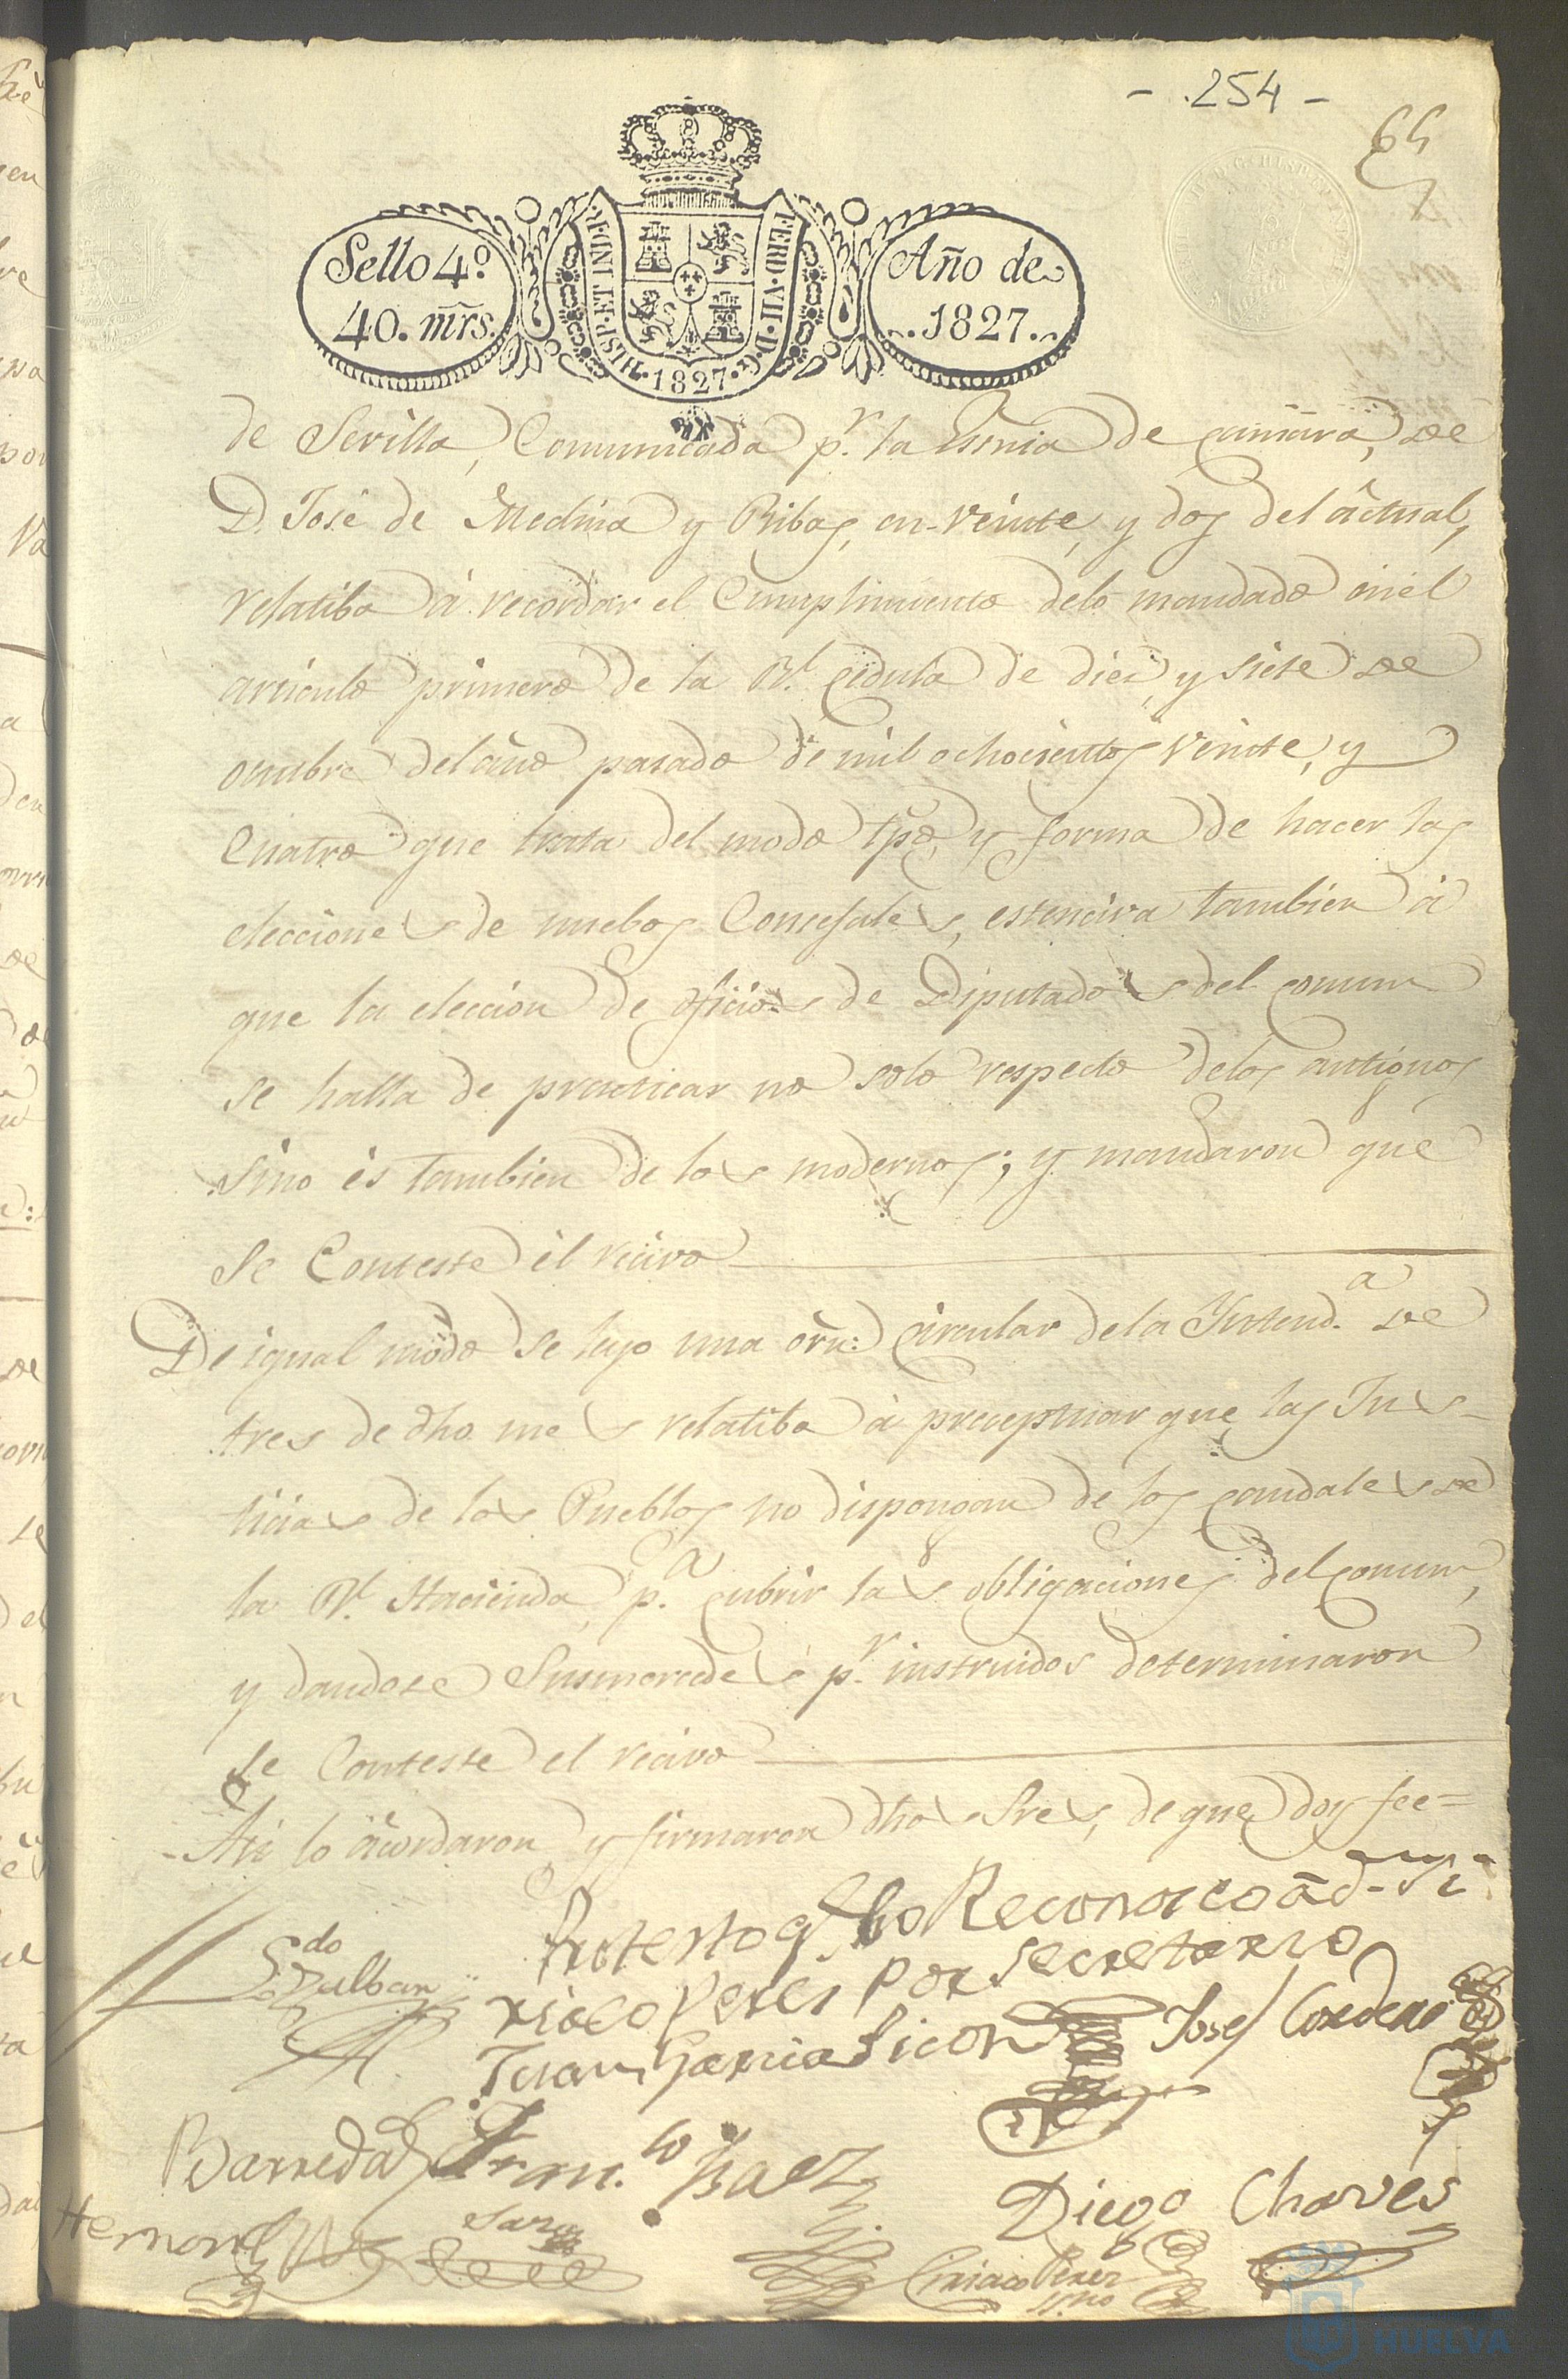 - 254 -
65
Sello 4º
40. mrs.
HISP. ET IND. R.
FERD. VII. D. G.
1827
Año de
1827.
de Sevilla, Comunicada pr. la Essnia de camara, de
D. José de Medina y Ribas, en veinte, y dos del actual,
relatiba á recordar el Cumplimiento delo mandado en el
articulo primero de la Rl. cedula de diez, y siete de
octubre del año pasado de mil ochocientos veinte, y
Cuatro que trata del modo tpo, y forma de hacer las
elecciones de nuebos Concejales, estenciva tambien á
que la eleccion de oficios de Diputados del comun
se halla de practicar no solo respecto delos antiguos
sino es tambien de los modernos; y mandaron que
se Conteste el recivo
De igual modo se leyo una orn: circular dela Yntend.a de
tres de dho mes relatiba á preceptuar que las Jus-
ticias de los Pueblos no dispongan de los caudales de
la Rl. Hacienda, p.a cubrir las obligaciones del comun,
y dandose Susmercedes pr. instruidos determinaron
se Conteste el recivo
Asi lo acordaron y firmaron dhos Sres, de que doy fee=
Protesto q. no Reconosco á d.
riaco Perez por secretario
Ldo Zalban
Juan Garcia Sicon
Josef Cordero
Barreda
Fran.co Baez
Diego Chaves
Hernand
Ciriaco Perez